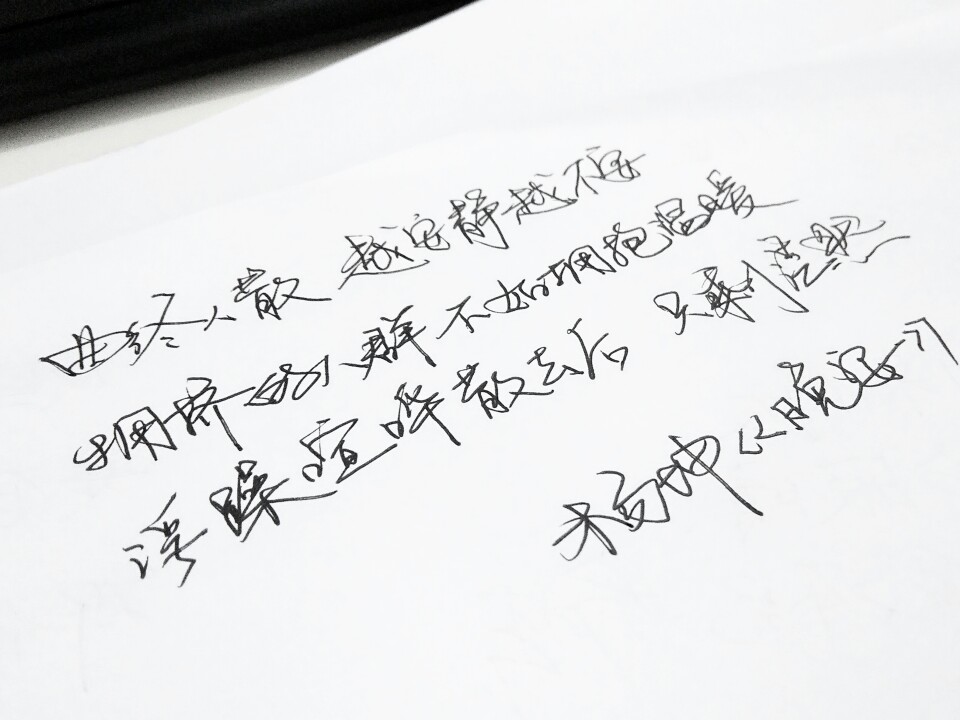 曲终人散 越安静越不安
拥挤的人群 不如拥抱温暖
浮躁喧哗散去后 只剩
杨坤《晚安》